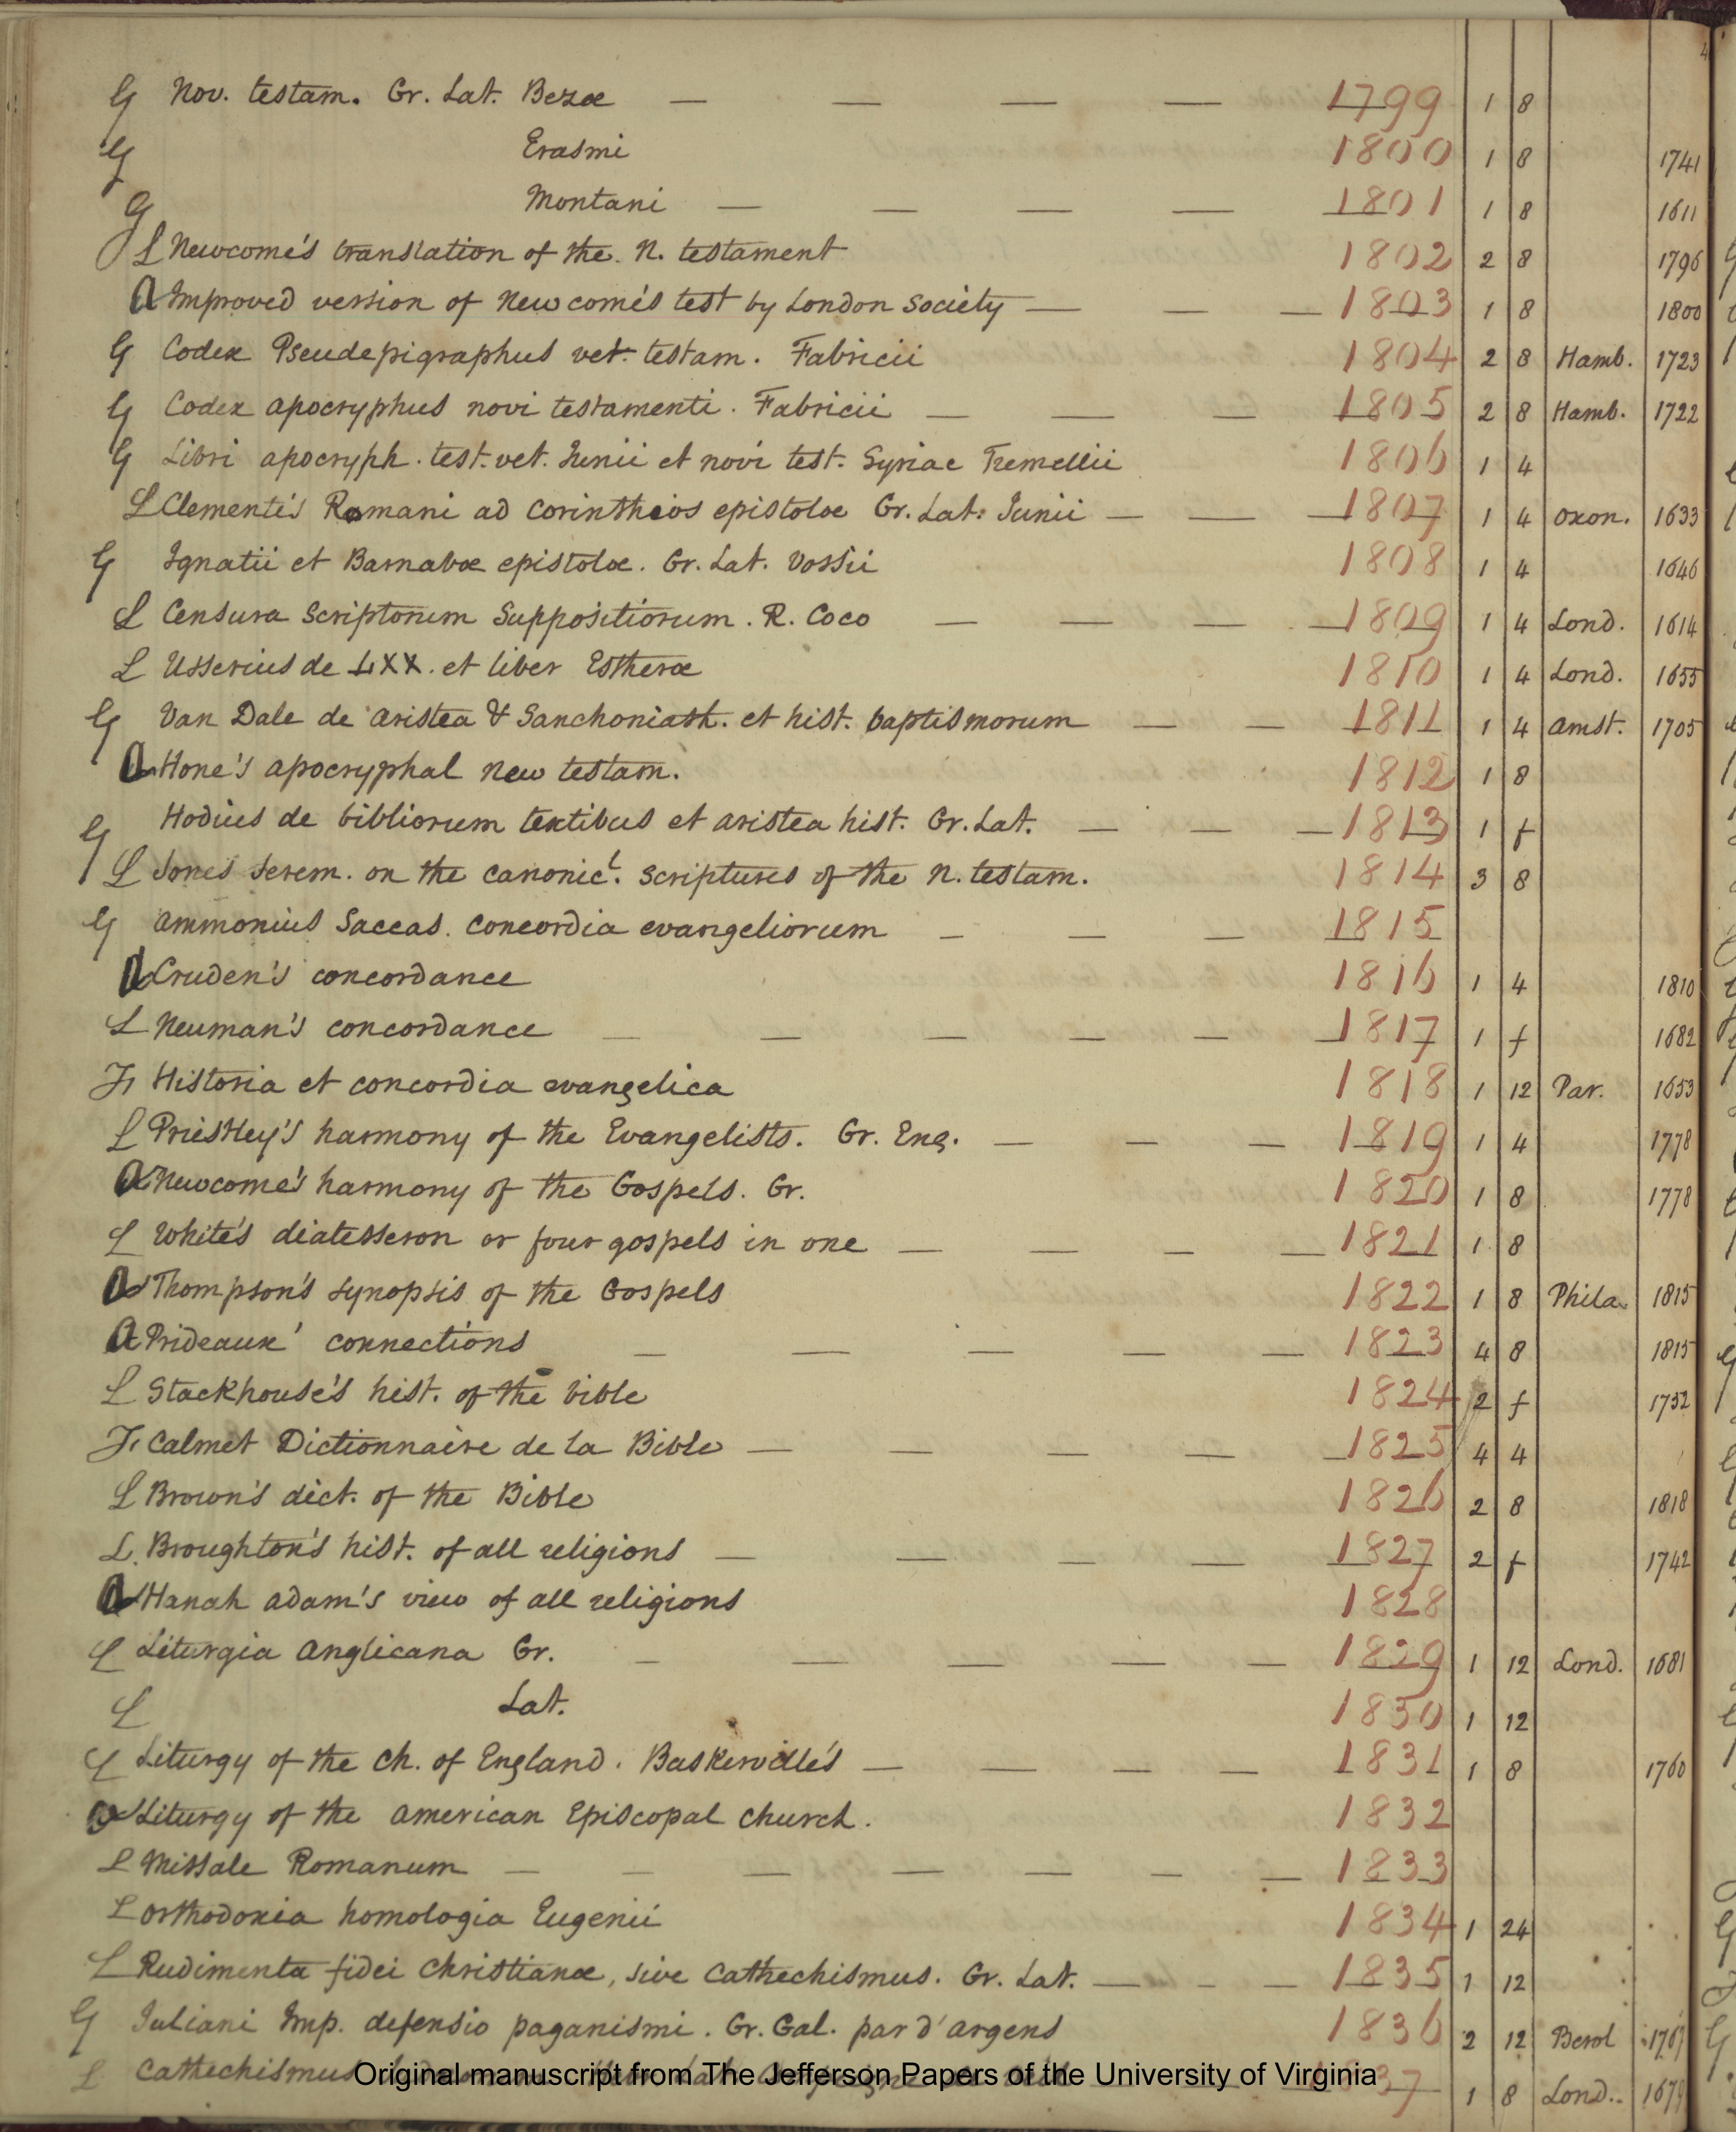 G Nov. testam. Gr. Lat. Bezae — — — — 1799 1 8
G Erasmi 1800 1 8 1741
G Montani — — — — 1801 1 8 1611
L Newcome's translation of the N. testament 1802 2 8 1796
A Improved version of Newcome's test by London Society — — — 1803 1 8 1800
G Codex Pseudepigraphus vet. testam. Fabricii 1804 2 8 Hamb. 1723
G Codex apocryphus novi testamenti. Fabricii — — — 1805 2 8 Hamb. 1722
G Libri apocryph. test. vet. Junii et novi test. Syriac Tremellii 1806 1 4
L Clementis Romani ad Corinthios epistolae Gr. Lat. Junii — — — 1807 1 4 Oxon. 1633
G Ignatii et Barnabae epistolae. Gr. Lat. Vossii 1808 1 4 1646
L Censura Scriptorum Suppositiorum. R. Coco — — — — 1809 1 4 Lond. 1614
L Usserius de LXX. et liber Estherae 1810 1 4 Lond. 1655
G Van Dale de Aristea & Sanchoniath. et hist. baptismorum — — 1811 1 4 Amst. 1705
A Hone's apocryphal new testam. 1812 1 8
G Hodius de bibliorum textibus et aristea hist. Gr. Lat. — — — 1813 1 f
L Jones Jerem. on the canonicl. scriptures of the N. testam. 1814 3 8
G Ammonius Saccas. Concordia evangeliorum — — — 1815
A Cruden's concordance 1816 1 4 1810
L Neuman's concordance — — — — — — 1817 1 f 1682
Fr Historia et concordia evangelica 1818 1 12 Par. 1653
L Priestley's harmony of the Evangelists. Gr. Eng. — — — 1819 1 4 1778
A Newcome's harmony of the Gospels. Gr. 1820 1 8 1778
L White's diatesseron or four gospels in one — — — — 1821 1 8
A Thompson's synopsis of the Gospels 1822 1 8 Phila. 1815
A Prideaux' connections — — — — — 1823 4 8 1815
L Stackhouse's hist. of the bible 1824 2 f 1752
Fr Calmet Dictionnaire de la Bible — — — — — 1825 4 4
L Brown's dict. of the Bible 1826 2 8 1818
L. Broughton's hist. of all religions — — — — 1827 2 f 1742
A Hanah Adam's view of all religions 1828
L Liturgia Anglicana Gr. — — — — — 1829 1 12 Lond. 1681
L Lat. 1830 1 12
L Liturgy of the Ch. of England. Baskerville's — — — — 1831 1 8 1760
A Liturgy of the American Episcopal church. 1832
L Missale Romanum — — — — — — — 1833
L Orthodoxia homologia Eugenii 1834 1 24
L Rudimenta fidei Christianae, sive Cathechismus. Gr. Lat. — — — 1835 1 12
G Juliani Imp. defensio paganismi. Gr. Gal. par d'argens 1836 2 12 Berol
L Cathechismus 1837 1 8 Lond.
Original manuscript from The Jefferson Papers of the University of Virginia